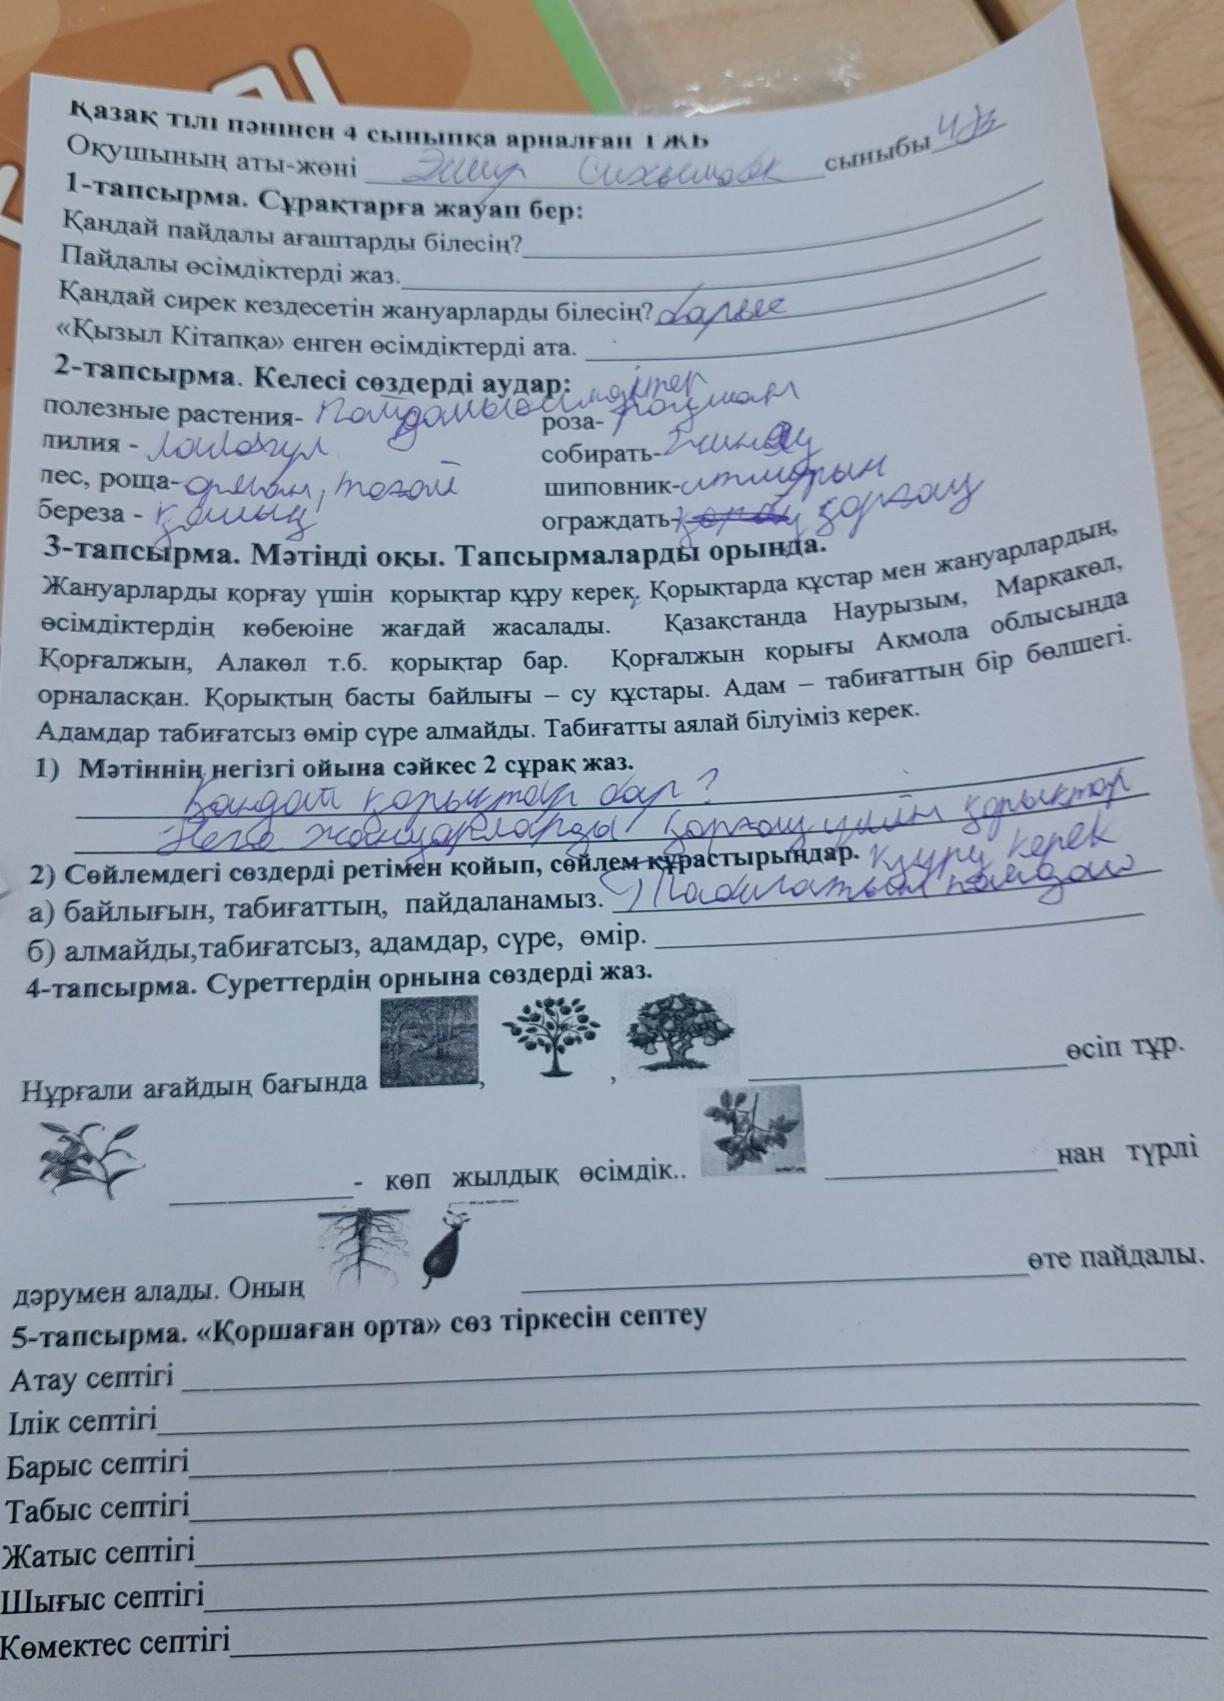 Қазақ тілі пәнінен 4 сыныпқа арналған 1 ЖБ
Оқушының аты-жөні сыныбы
1-тапсырма. Сұрақтарға жауап бер:
Қандай пайдалы ағаштарды білесің?
Пайдалы өсімдіктерді жаз.
Қандай сирек кездесетін жануарларды білесің? барыс
«Қызыл Кітапқа» енген өсімдіктерді ата.
2-тапсырма. Келесі сөздерді аудар:
полезные растения- пайдалы өсімдіктер роза- раушан
лилия - лалагүл собирать- жинау
лес, роща- орман, тоғай шиповник- итмұрын
береза - қайың ограждать- қорғау
3-тапсырма. Мәтінді оқы. Тапсырмаларды орында.
Жануарларды қорғау үшін қорықтар құру керек. Қорықтарда құстар мен жануарлардың,
өсімдіктердің көбеюіне жағдай жасалады. Қазақстанда Наурызым, Марқакөл,
Қорғалжын, Алакөл т.б. қорықтар бар. Қорғалжын қорығы Ақмола облысында
орналасқан. Қорықтың басты байлығы – су құстары. Адам – табиғаттың бір бөлшегі.
Адамдар табиғатсыз өмір сүре алмайды. Табиғатты аялай білуіміз керек.
1) Мәтіннің негізгі ойына сәйкес 2 сұрақ жаз.
Қандай қорықтар бар?
Неге жануарларды қорғау үшін қорықтар
құру керек
2) Сөйлемдегі сөздерді ретімен қойып, сөйлем құрастырыңдар.
а) байлығын, табиғаттың, пайдаланамыз.
б) алмайды,табиғатсыз, адамдар, сүре, өмір.
4-тапсырма. Суреттердің орнына сөздерді жаз.
Нұрғали ағайдың бағында , , өсіп тұр.
- көп жылдық өсімдік.. нан түрлі
дәрумен алады. Оның өте пайдалы.
5-тапсырма. «Қоршаған орта» сөз тіркесін септеу
Атау септігі
Ілік септігі
Барыс септігі
Табыс септігі
Жатыс септігі
Шығыс септігі
Көмектес септігі